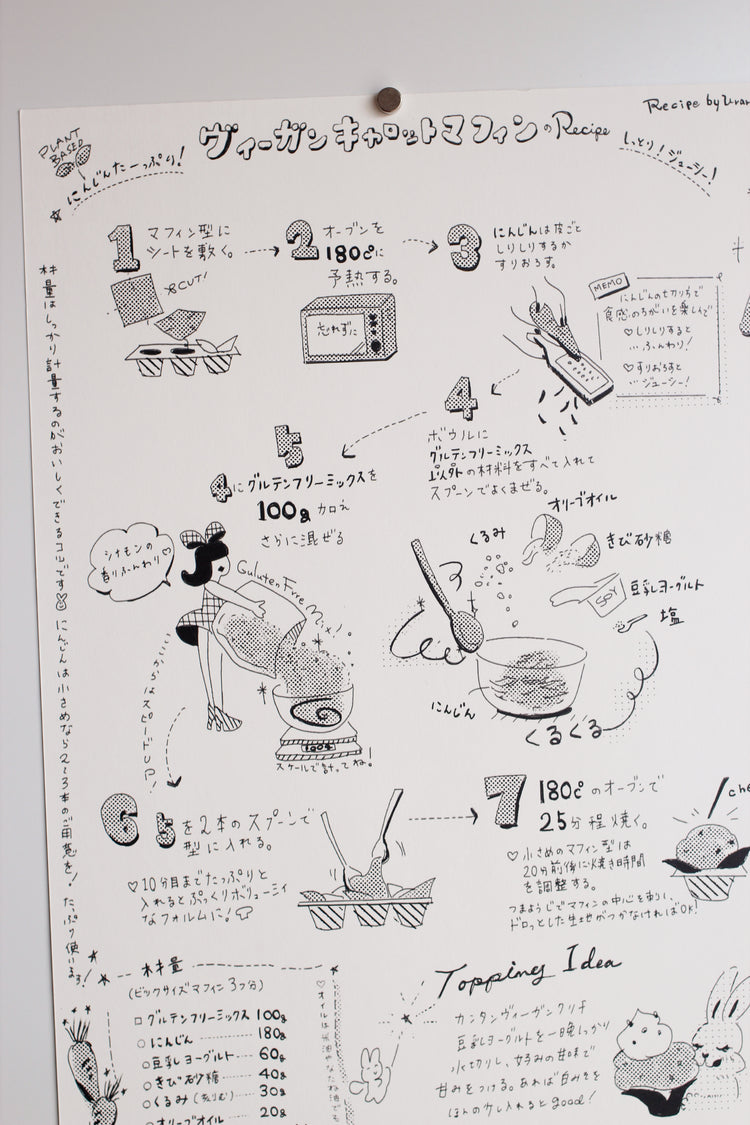 Recipe by
PLANT
BASED
ヴィーガンキャロットマフィンのRecipe
にんじんたーっぷり!
しっとり!ジューシー!
1
マフィン型に
シートを敷く。
CUT!
2
オーブンを
180℃に
予熱する。
忘れずに
3
にんじんは皮ごと
しりしりするか
すりおろす。
MEMO
にんじんの切り方で
食感のちがいを楽しんで
♡しりしりすると
…ふんわり!
♡すりおろすと
…ジューシー!
4
ボウルに
グルテンフリーミックス
以外の材料をすべて入れて
スプーンでよくまぜる。
オリーブオイル
くるみ
きび砂糖
豆乳ヨーグルト
SOY
塩
にんじん
くるくる
5
4にグルテンフリーミックスを
100g加え
さらに混ぜる
シナモンの
香りふんわり♡
Guluten Free Mix!
100g
スケールで計ってね!
ここからはスピードUP!
6
5を2本のスプーンで
型に入れる。
♡10分目までたっぷりと
入れるとぷっくりボリューミィ
なフォルムに!
7
180℃のオーブンで
25分程焼く。
♡小さめのマフィン型は
20分前後に焼き時間
を調整する。
つまようじでマフィンの中心を刺し、
ドロっとした生地がつかなければOK!
材量はしっかり計量するのがおいしくできるコツです にんじんは小さめなら2~3本のご用意を!たっぷり使います!
材量
(ビックサイズマフィン3つ分)
□グルテンフリーミックス 100g
○にんじん 180g
○豆乳ヨーグルト 60g
○きび砂糖 40g
○くるみ 30g
○オリーブオイル 20g
♡オイルは米油やなたね油でも
Topping Idea
カンタンヴィーガンクリチ
豆乳ヨーグルトを一晩しっかり
水切りし、お好みの甘味で
甘みをつける。あれば白みそを
ほんの少し入れるとgood!